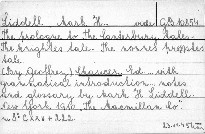 Liddell, Mark H. ed. G.B. 10254
The prologue to the Canterbury tales.
The knightes tale. The nonnes prestes
tale.
(By Geoffrey) Chaucer. Ed. with
grammatical introduction, notes
and glossary by Mark H. Liddell.
New York 1910, The Macmillan Co.